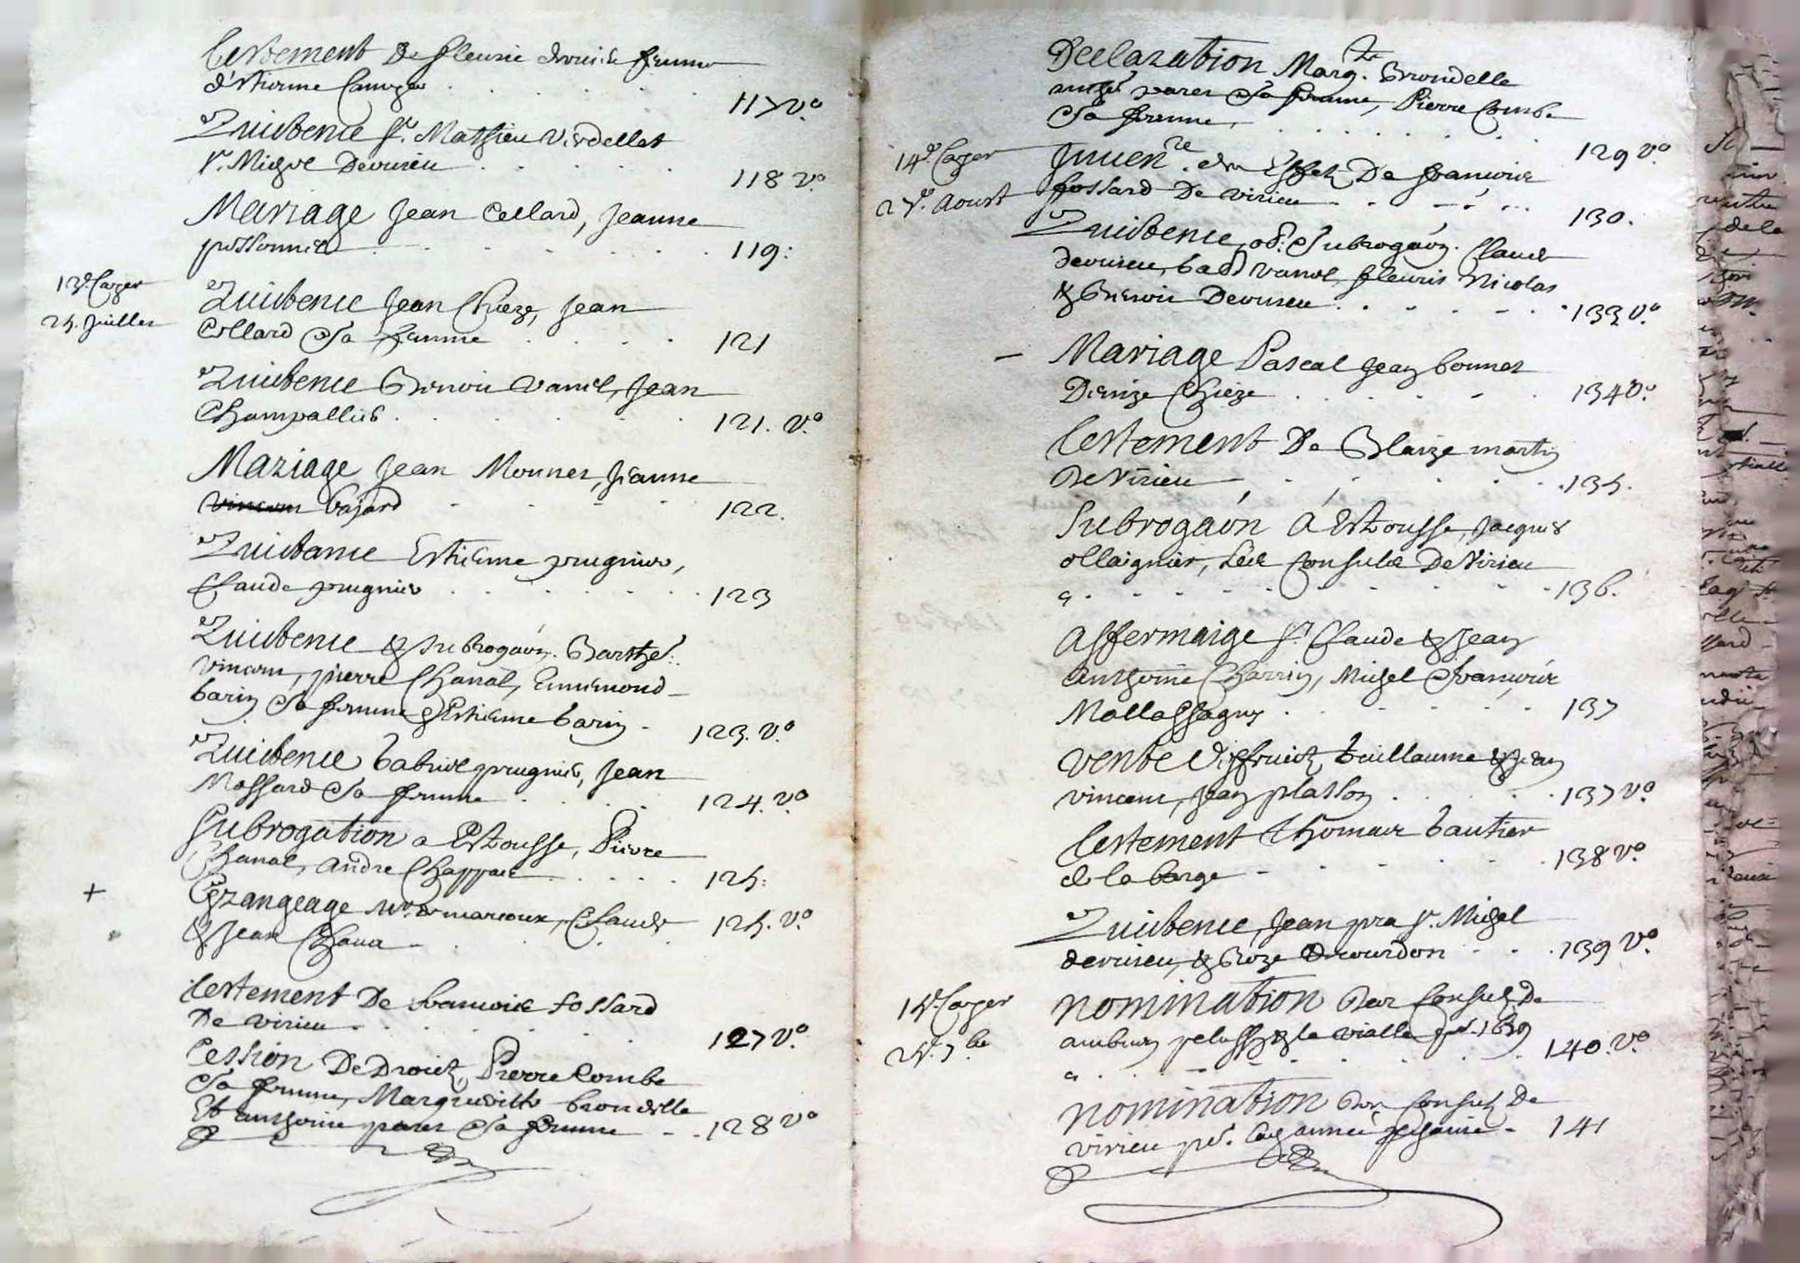 Testement De fleurie drouite femme
d'Etienne Camyer
117 v.o
Quictence Sr. Mathieu Verdellet
Sr. Migel Devirieu
118 v.o
Mariage Jean Collard, Jeanne
possonnier
119.
13e Cayer
25. Juillet
Quictence Jean Chieze, Jean
Collard & Sa femme
121
Quictence Benoit Vanel, Jean
Champallier
121. v.o
Mariage Jean Monner, Jeanne
Bajard
122.
Quictance Estienne prugnier,
Claude prugnier
123
Quictence & subrogaon. Barthel.
Vincent, pierre Chanal, Ennemond
barin & Sa femme & Estienne barin
123. v.o
Quictence Gabriel prugnier, Jean
Mossard & Sa femme
124. v.o
Subrogation a Estousse, Pierre
Chanal, André Chappat
125.
+ Eschangeage Claude
& Jean Chava
125. v.o
Testement De francoise fossard
De Virieu
127 v.o
Cession De Droict, Pierre Combe
& Sa femme, Margueritte brondelle
Et anthoine & Sa femme
128 v.o
Declaration Marg.te Brondelle
anthe & Sa femme, Pierre Combe
& Sa femme,
129 v.o
14e. Cayer
27e. Aoust
Inven.re des Effetz De francoise
fossard De Virieu
130.
Quictence, ob. & subrogaon. Claude
devirieu, Vanel, fleurie Nicolas
& Benoit Devirieu
133 v.o
Mariage Pascal Jean bonnet
Denize Chieze
134 v.o
Testement De Blaize martin
De Virieu
135.
Subrogaon A Estousse, Jacques
ollaignier, Les Consulz De Virieu
136.
Affermaige Sr. Claude & Jean
anthoine Charrin, Michel & francois
Mallassagny
137
Vente Guillaume & Jean
vincent, Jean plasson
137 v.o
Testement Thomas Gautier
de la barge
138 v.o
Quictence, Jean pra Sr. Migel
devirieu, & Roze Decourdon
139 v.o
15e. Cayer
25e. 7.be
nomination Des Consulz De
& la Vialle 1659
140. v.o
nomination Des Consulz De
virieu
141